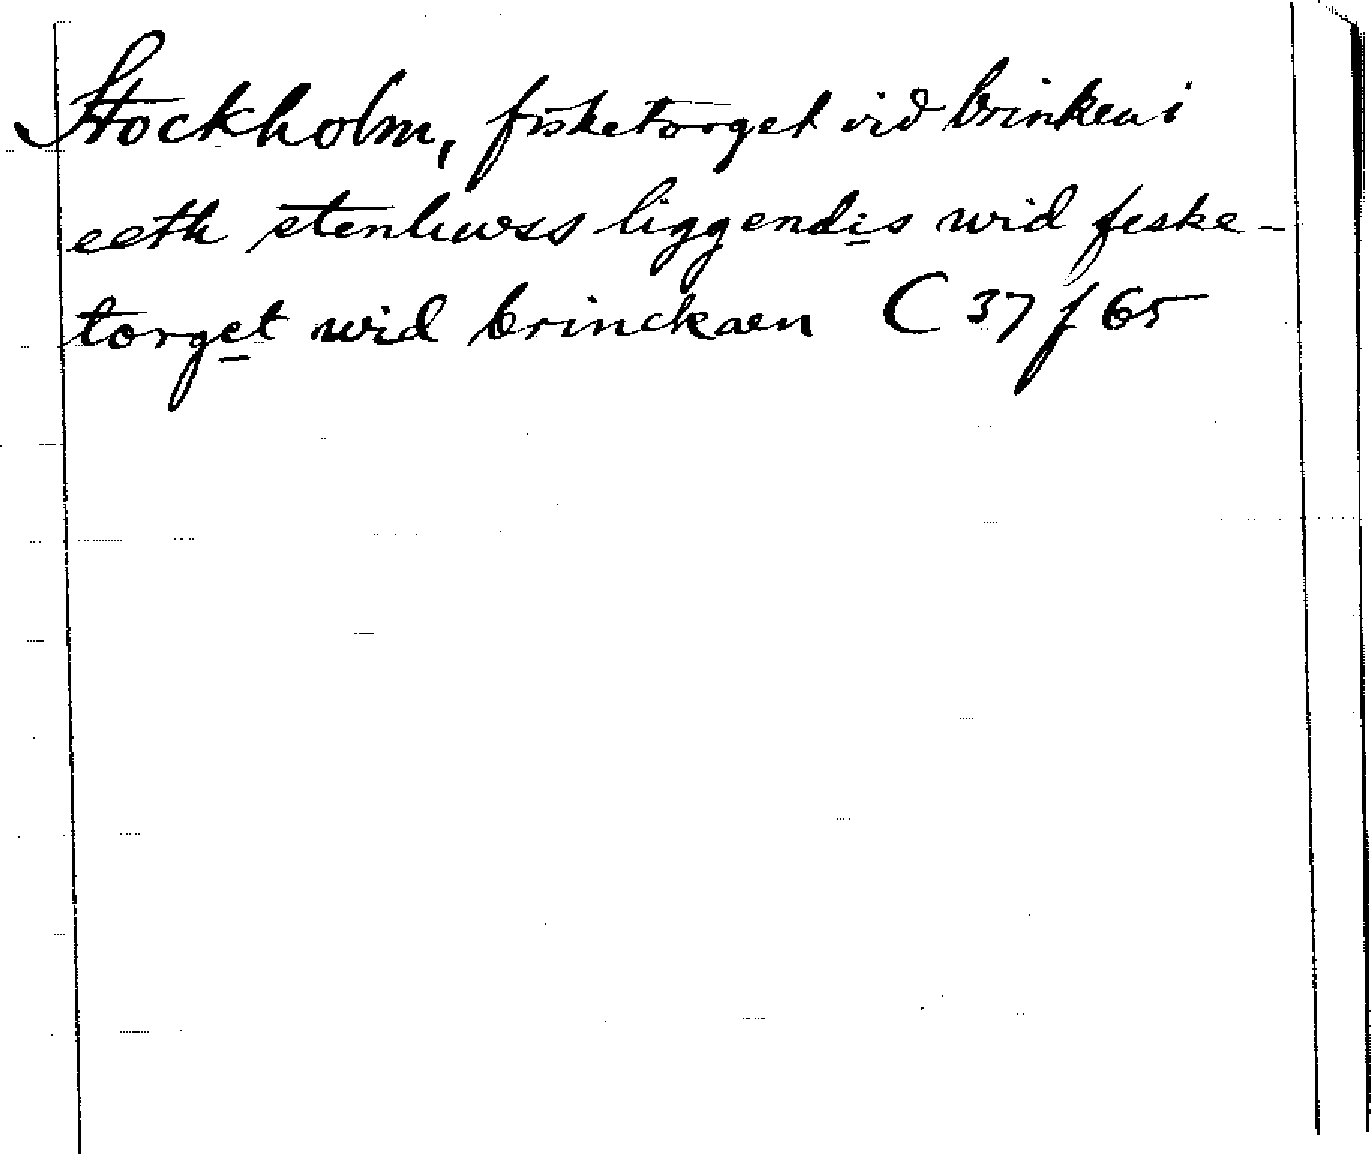 Stockholm, fisketorget vid brinken i
eeth stenhwss liggendis wid feske-
torget wid brinckaen C 37 f 65